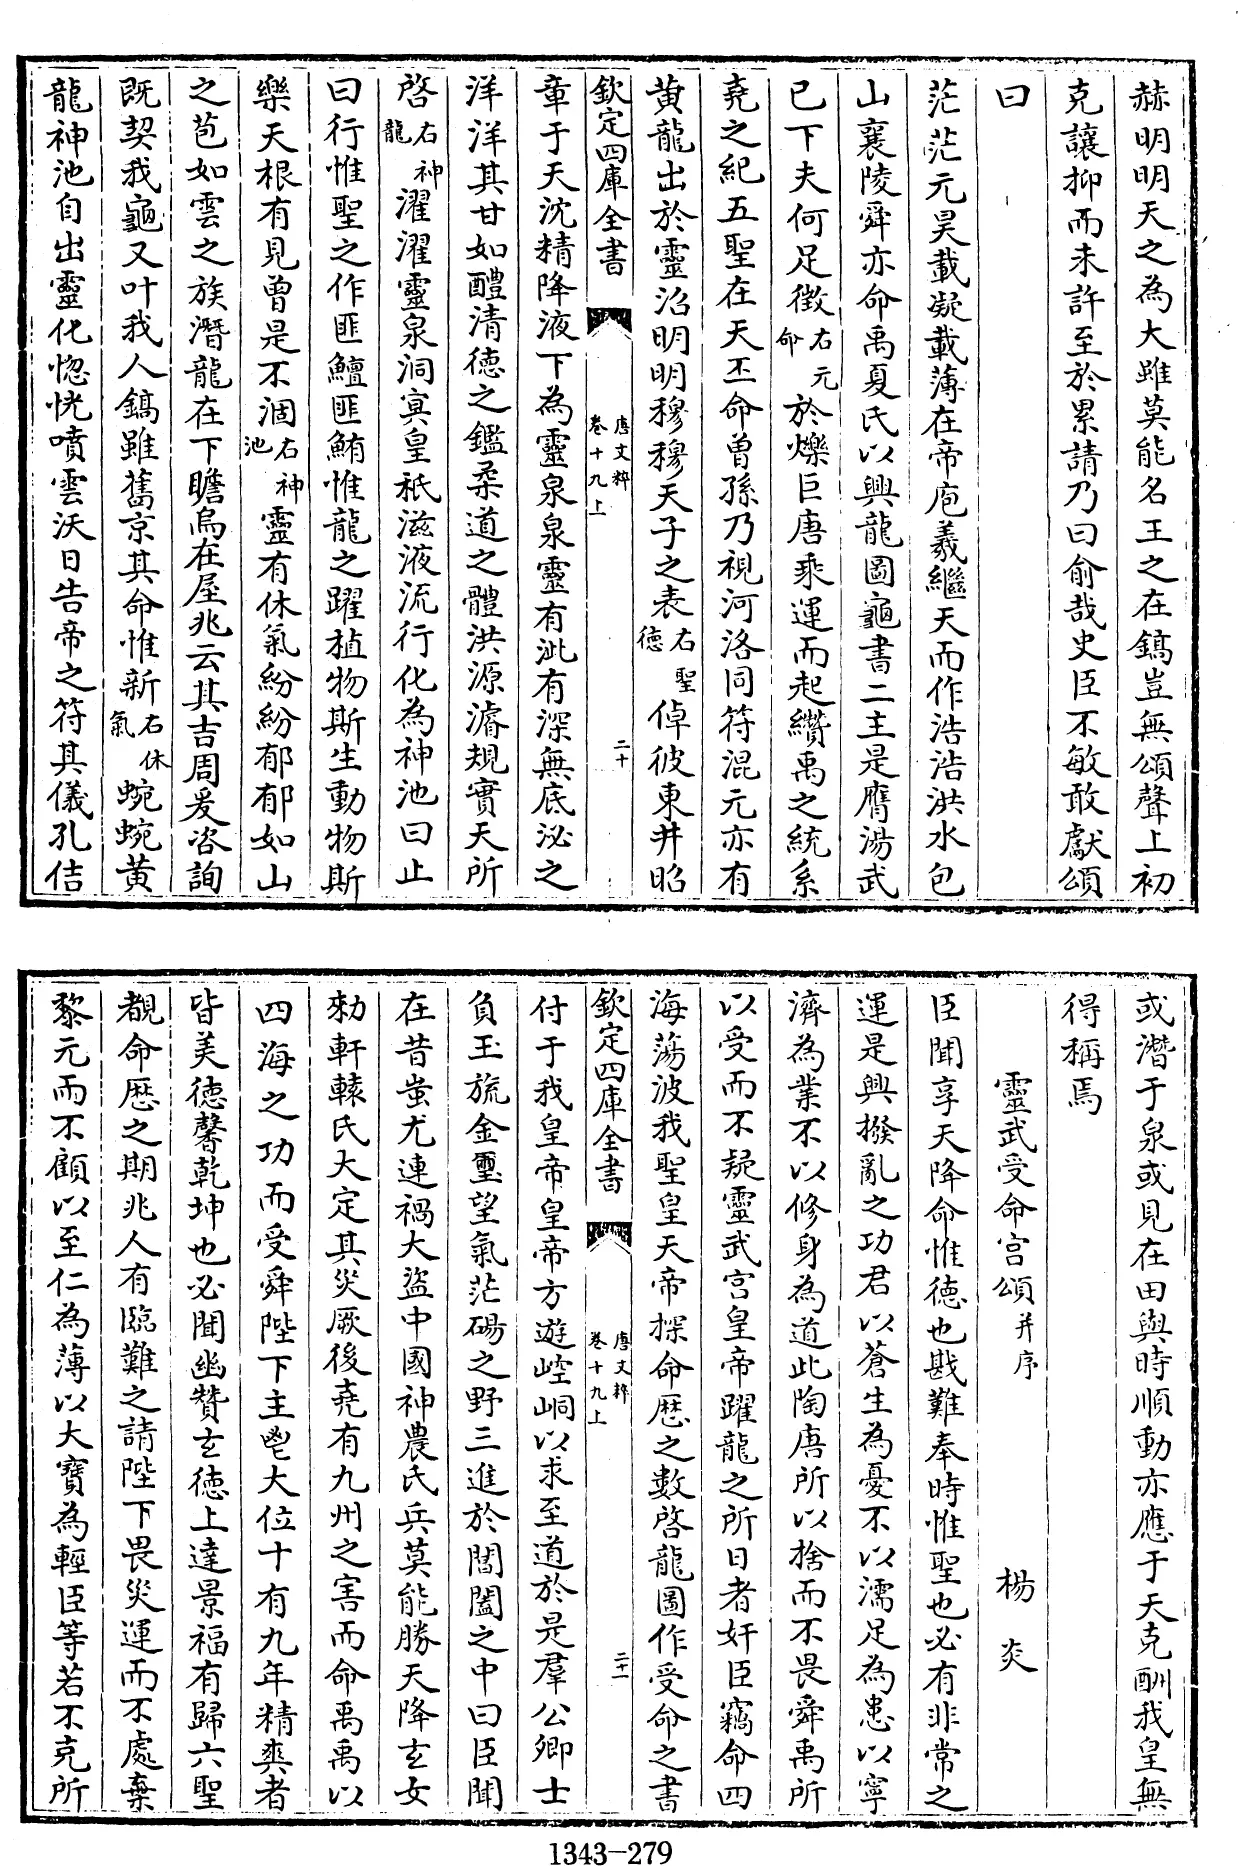 赫明明天之為大雖莫能名王之在鎬豈無頌聲上初
克讓抑而未許至於累請乃曰俞哉史臣不敏敢獻頌
曰
茫茫元昊載凝載薄在帝庖羲繼天而作浩浩洪水包
山襄陵舜亦命禹夏氏以興龍圖龜書二主是膺湯武
已下夫何足徵右元命於爍巨唐乘運而起纘禹之統系
堯之紀五聖在天丕命曾孫乃視河洛同符混元亦有
黄龍出於靈沼明明穆穆天子之表右聖德倬彼東井昭
欽定四庫全書 唐文粹 卷十九上 二十
章于天沈精降液下為靈泉泉靈有泚有深無底泌之
洋洋其甘如醴清徳之鑑柔道之體洪源濬規實天所
啓右神龍濯濯靈泉洞寞皇祇滋液流行化為神池曰止
曰行惟聖之作匪鱣匪鮪惟龍之躍植物斯生動物斯
樂天根有見曾是不涸右神池靈有休氣紛紛郁郁如山
之苞如雲之族潛龍在下瞻烏在屋兆云其吉周爰咨詢
既契我龜又叶我人鎬雖舊京其命惟新右休氣蜿蜿黄
龍神池自出靈化惚恍噴雲沃日告帝之符其儀孔佶
或潛于泉或見在田與時順動亦應于天克酬我皇無
得稱焉
靈武受命宫頌并序 楊炎
臣聞享天降命惟德也戡難奉時惟聖也必有非常之
運是興撥亂之功君以蒼生為憂不以濡足為患以寧
濟為業不以修身為道此陶唐所以捨而不畏舜禹所
以受而不疑靈武宫皇帝躍龍之所日者奸臣竊命四
海蕩波我聖皇天帝探命厯之數啓龍圖作受命之書
欽定四庫全書 唐文粹 卷十九上 二十一
付于我皇帝皇帝方遊崆峒以求至道於是羣公卿士
負玉旒金璽望氣茫碭之野三進於閶闔之中曰臣聞
在昔蚩尤連禍大盜中國神農氏兵莫能勝天降玄女
勑軒轅氏大定其災厥後堯有九州之害而命禹禹以
四海之功而受舜陛下主鬯大位十有九年精爽者
皆美德馨乾坤也必聞幽贊玄徳上達景福有歸六聖
覩命厯之期兆人有臨難之請陛下畏災運而不處棄
黎元而不顧以至仁為薄以大寶為輕臣等若不克所
1343-279